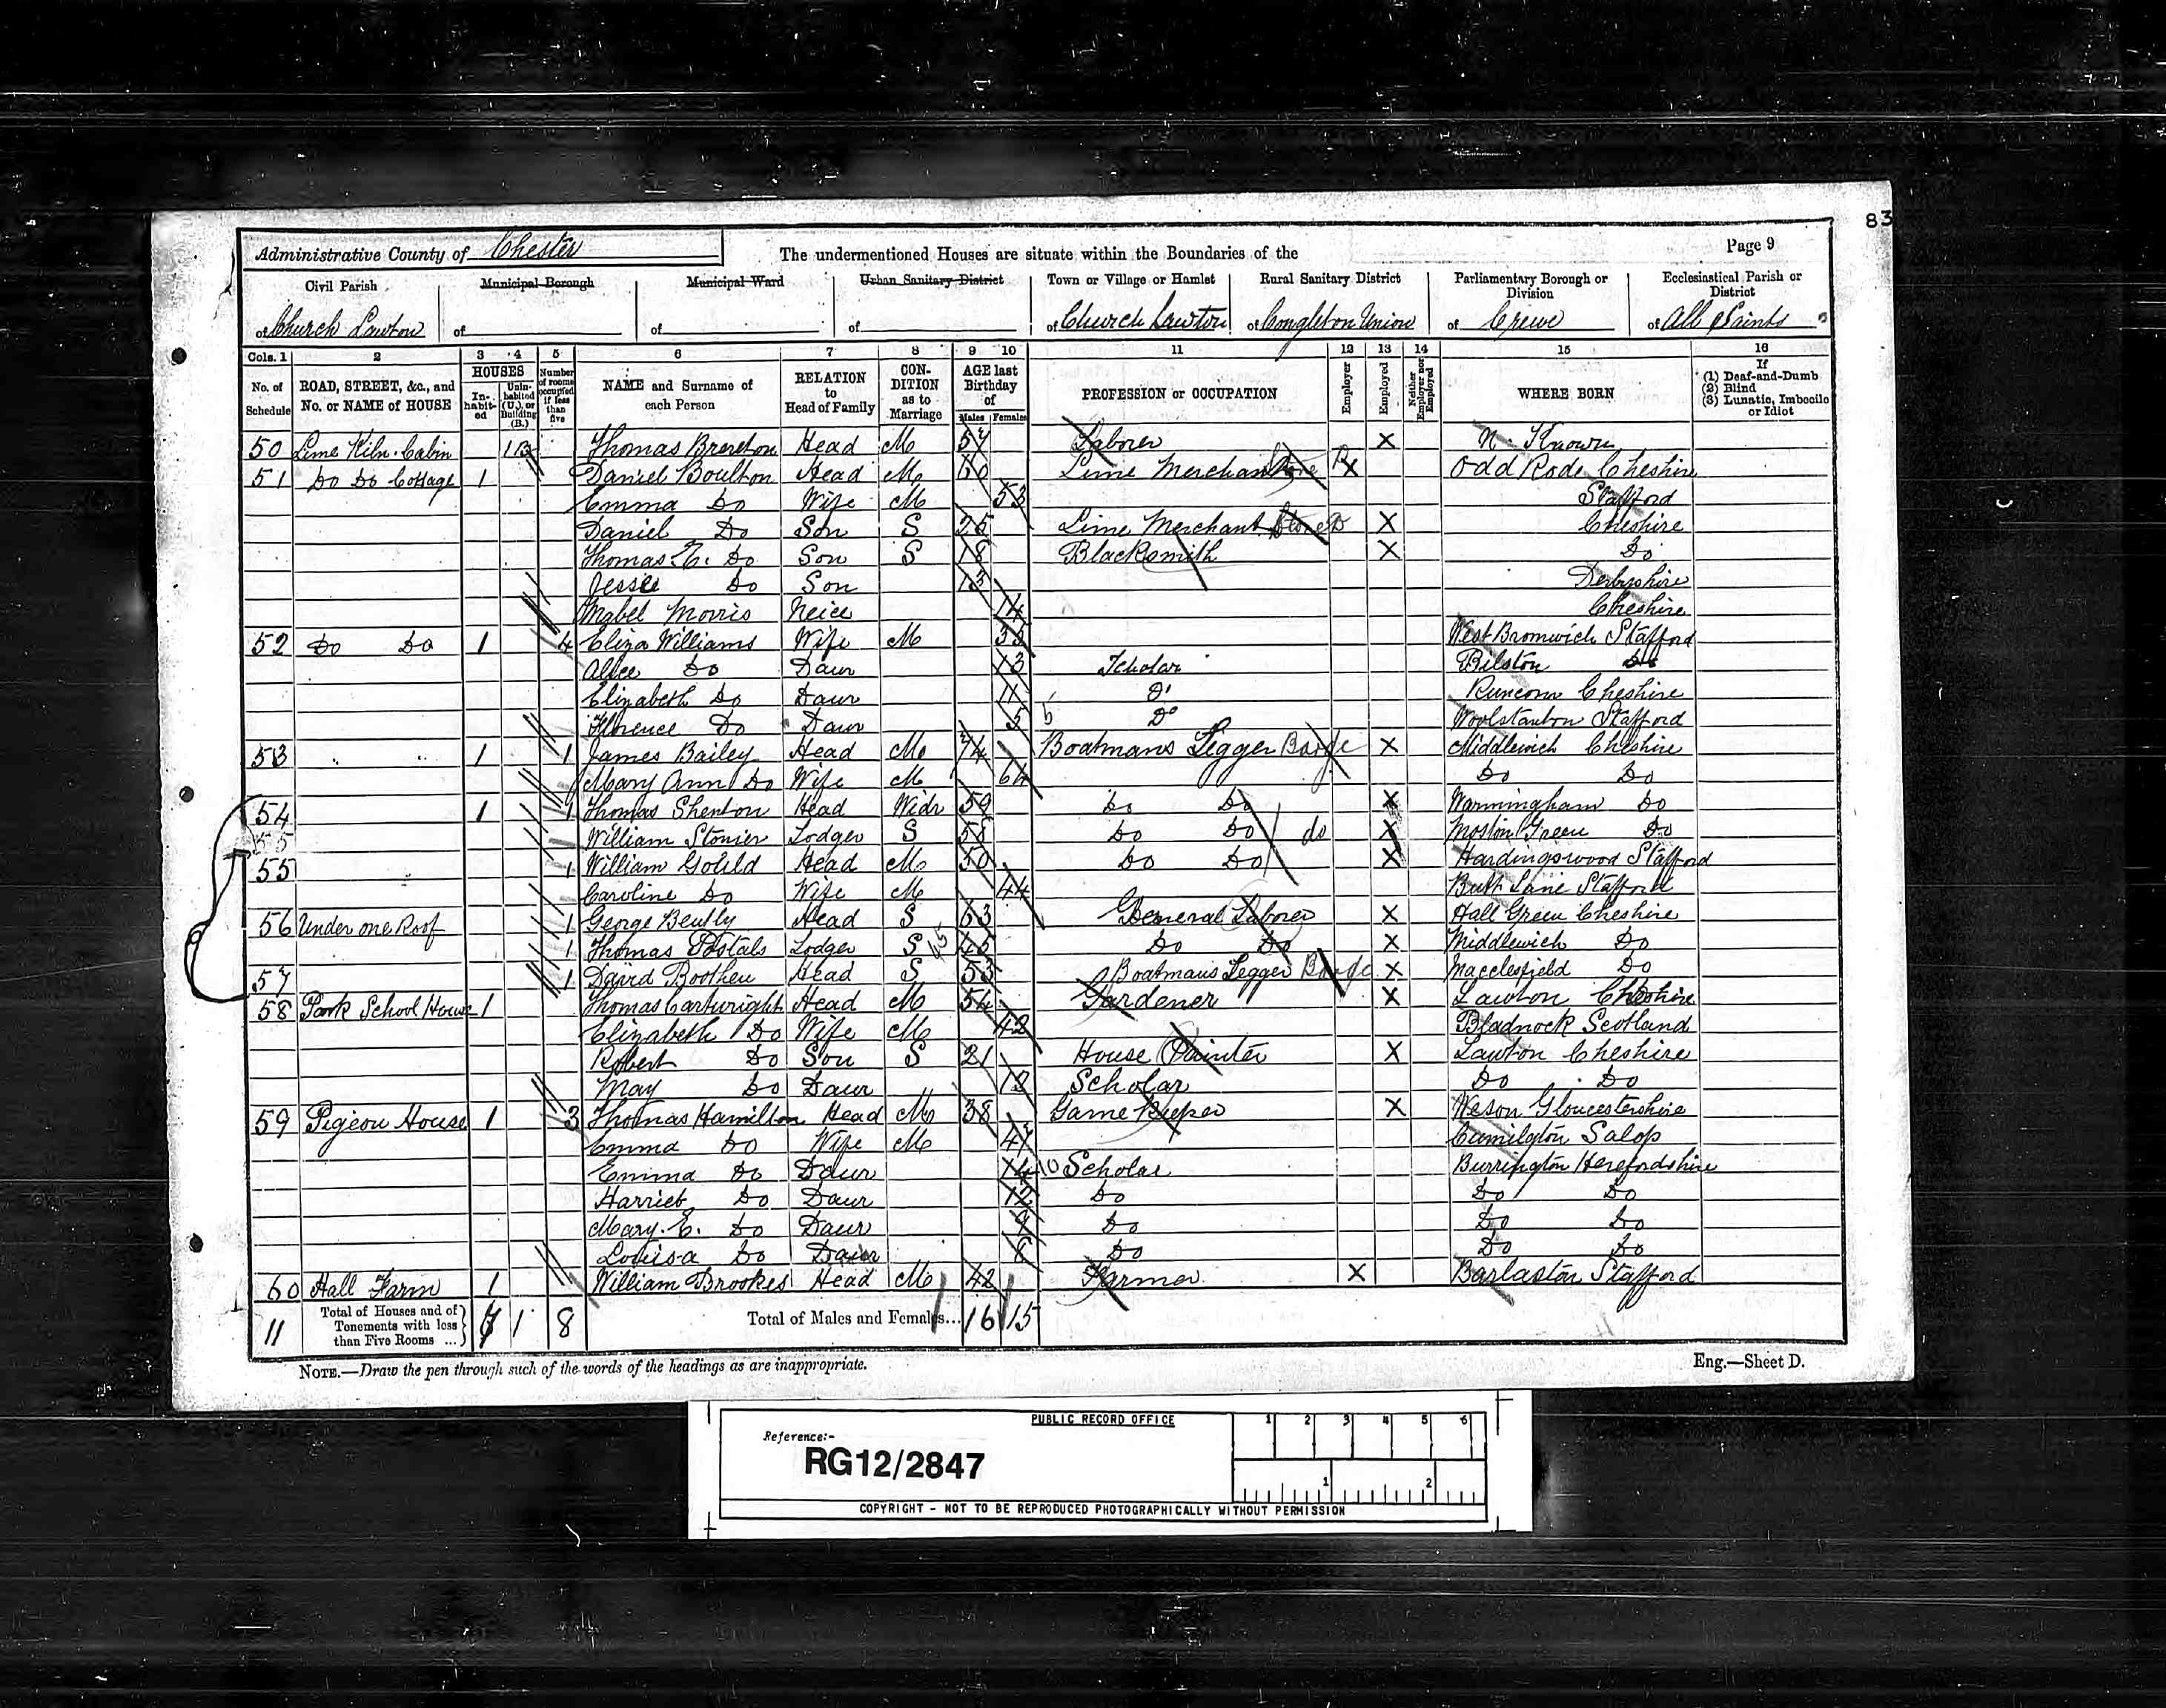 83
Administrative County of Chester The undermentioned Houses are situate within the Boundaries of the Page 9
Civil Parish Municipal Borough Municipal Ward Urban Sanitary District Town or Village or Hamlet Rural Sanitary District Parliamentary Borough or Division Ecclesiastical Parish or District
of Church Lawton of of of of Church Lawton of Congleton Union of Crewe of All Saints
Cols. 1 2 3 4 5 6 7 8 9 10 11 12 13 14 15 16
No. of Schedule ROAD, STREET, &c., and No. or NAME of HOUSE HOUSES In-habit-ed Unin-habited (U.), or Building (B.) Number of rooms occupied if less than five NAME and Surname of each Person RELATION to Head of Family CON-DITION as to Marriage AGE last Birthday of Males Females PROFESSION or OCCUPATION Employer Employed Neither Employer nor Employed WHERE BORN If (1) Deaf-and-Dumb (2) Blind (3) Lunatic, Imbecile or Idiot
50 Lime Kiln Cabin 1B Thomas Brereton Head M 57 Laborer X N. Known
51 Do Do Cottage 1 Daniel Boulton Head M 60 Lime Merchant X Odd Rode Cheshire
Emma Do Wife M 53 Stafford
Daniel Do Son S 25 Lime Merchant X Cheshire
Thomas E. Do Son S 18 Blacksmith X Do
Jessie Do Son 13 Derbyshire
Mabel Morris Neice 14 Cheshire
52 Do Do 1 4 Eliza Williams Wife M 35 West Bromwich Stafford
Alice Do Daur 13 Scholar Bilston Do
Elizabeth Do Daur 11 Do Runcorn Cheshire
Florence Do Daur 5 Do Woolstanton Stafford
53 " " 1 1 James Bailey Head M 74 Boatmans Legger Barge X Middlewich Cheshire
Mary Ann Do Wife M 64 Do Do
54 1 1 Thomas Shenton Head Widr 59 Do Do X Warmingham Do
55 William Stonier Lodger S 58 Do Do do X Moston Green Do
55 1 William Goldd Head M 50 Do Do X Hardingswood Stafford
Caroline Do Wife M 44 Butt Lane Stafford
56 Under one Roof 1 George Bently Head S 63 General Laborer X Hall Green Cheshire
1 Thomas Postals Lodger S 45 Do Do X Middlewich Do
57 1 David Boothey Head S 53 Boatmans Legger Barge X Macclesfield Do
58 Park School House 1 Thomas Cartwright Head M 54 Gardener X Lawton Cheshire
Elizabeth Do Wife M 42 Bladnock Scotland
Robert Do Son S 21 House Painter X Lawton Cheshire
May Do Daur 12 Scholar Do Do
59 Pigeon House 1 3 Thomas Hamilton Head M 38 Game Keeper X Weson Gloucestershire
Emma Do Wife M 47 Salop
Emma Do Daur 14 Scholar Burrington Herefordshire
Harriet Do Daur 12 Do Do Do
Mary. E. Do Daur 9 Do Do Do
Louisa Do Daur 6 Do Do Do
60 Hall Farm 1 William Brookes Head M 42 Farmer X Barlaston Stafford
11 Total of Houses and of Tenements with less than Five Rooms ... 7 1 8 Total of Males and Females... 16 15
NOTE.—Draw the pen through such of the words of the headings as are inappropriate. Eng.—Sheet D.
PUBLIC RECORD OFFICE 1 2 3 4 5 6
Reference:-
RG12/2847
1 2
COPYRIGHT - NOT TO BE REPRODUCED PHOTOGRAPHICALLY WITHOUT PERMISSION